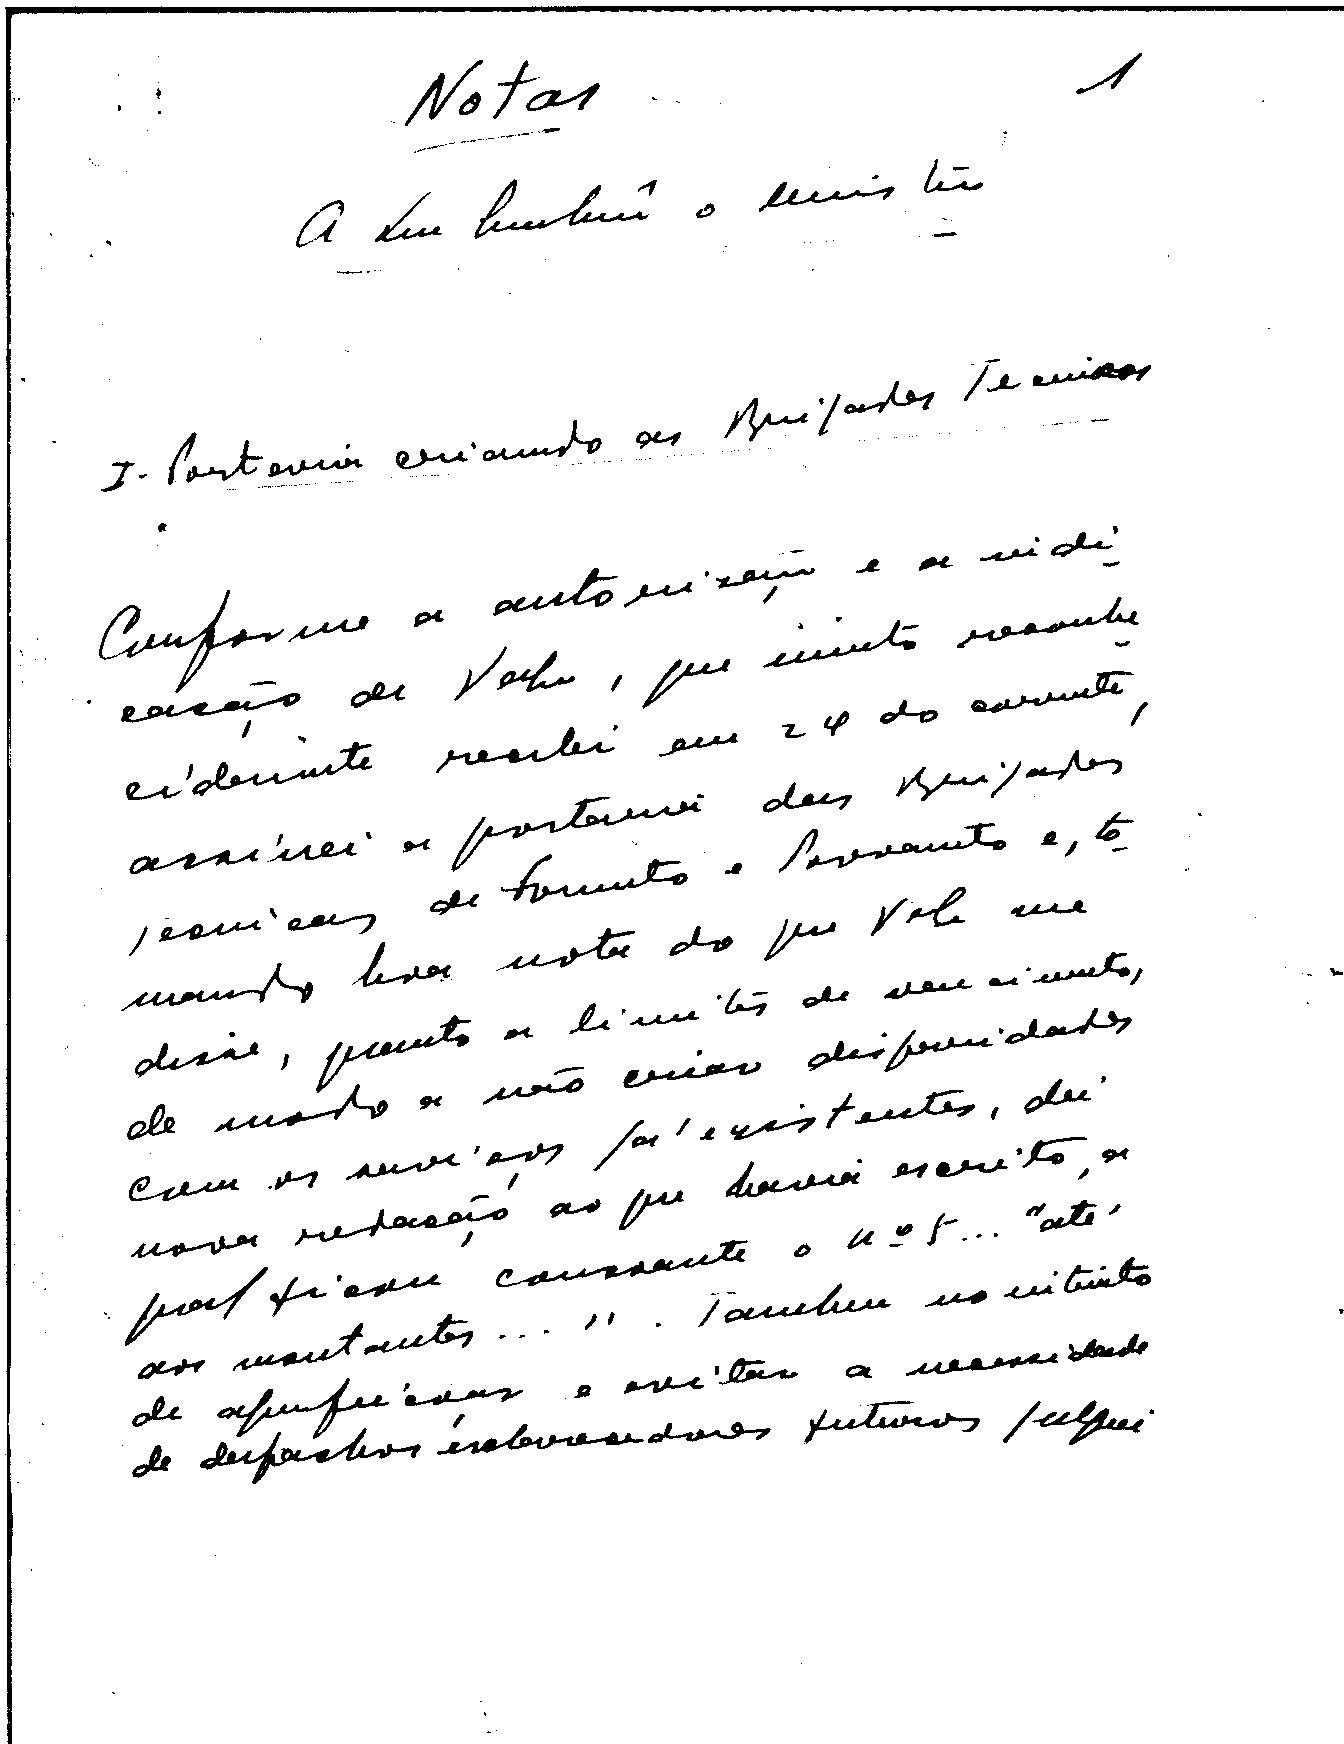 Notas
1
A Sua Excia o Ministro
I - Portaria criando as Brigadas Tecnicas
Conforme a autorização e a indi
cação de V. Exa, que muito reconhe
cidamente recebi em 24 do corrente,
assinei a portaria das Brigadas
Tecnicas de Fomento e Povoamento e, to
mando boa nota do que V. Exa me
disse, quanto a limites de vencimentos,
de modo a não criar disparidades
com os serviços já existentes, dei
nova redacção ao que havia escrito, a
qual ficou consoante o nº 5... "até
aos montantes ... ". Tambem no intuito
de aperfeiçoar e evitar a necessidade
de despachos esclarecedores futuros julguei